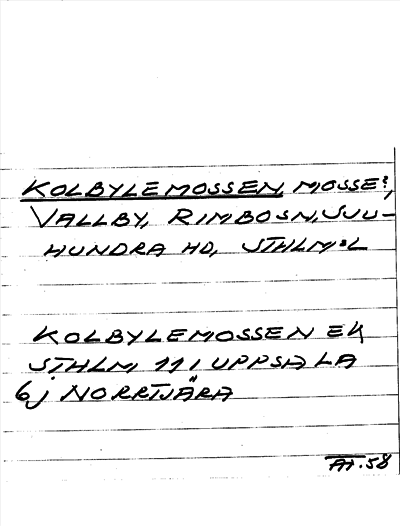 KOLBYLEMOSSEN, MOSSE?,
VALLBY, RIMBO SN, SJU-
HUNDRA HD, STHLM:S L
KOLBYLEMOSSEN EK
STHLM 11 I UPPSALA
6j NORRTJÄRA
AT. 58